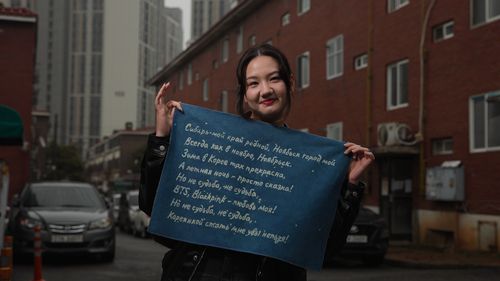 Сибирь-мой край родной, Ноябрьск город мой
Всегда как в ноябре, Ноябрьск.
Зима в Корее так прекрасна,
А летняя ночь - просто сказка!
Но не судьба, не судьба,
BTS, Blackpink - любовь моя!
Но не судьба, не судьба,
Кореянкой стать мне увы нельзя!